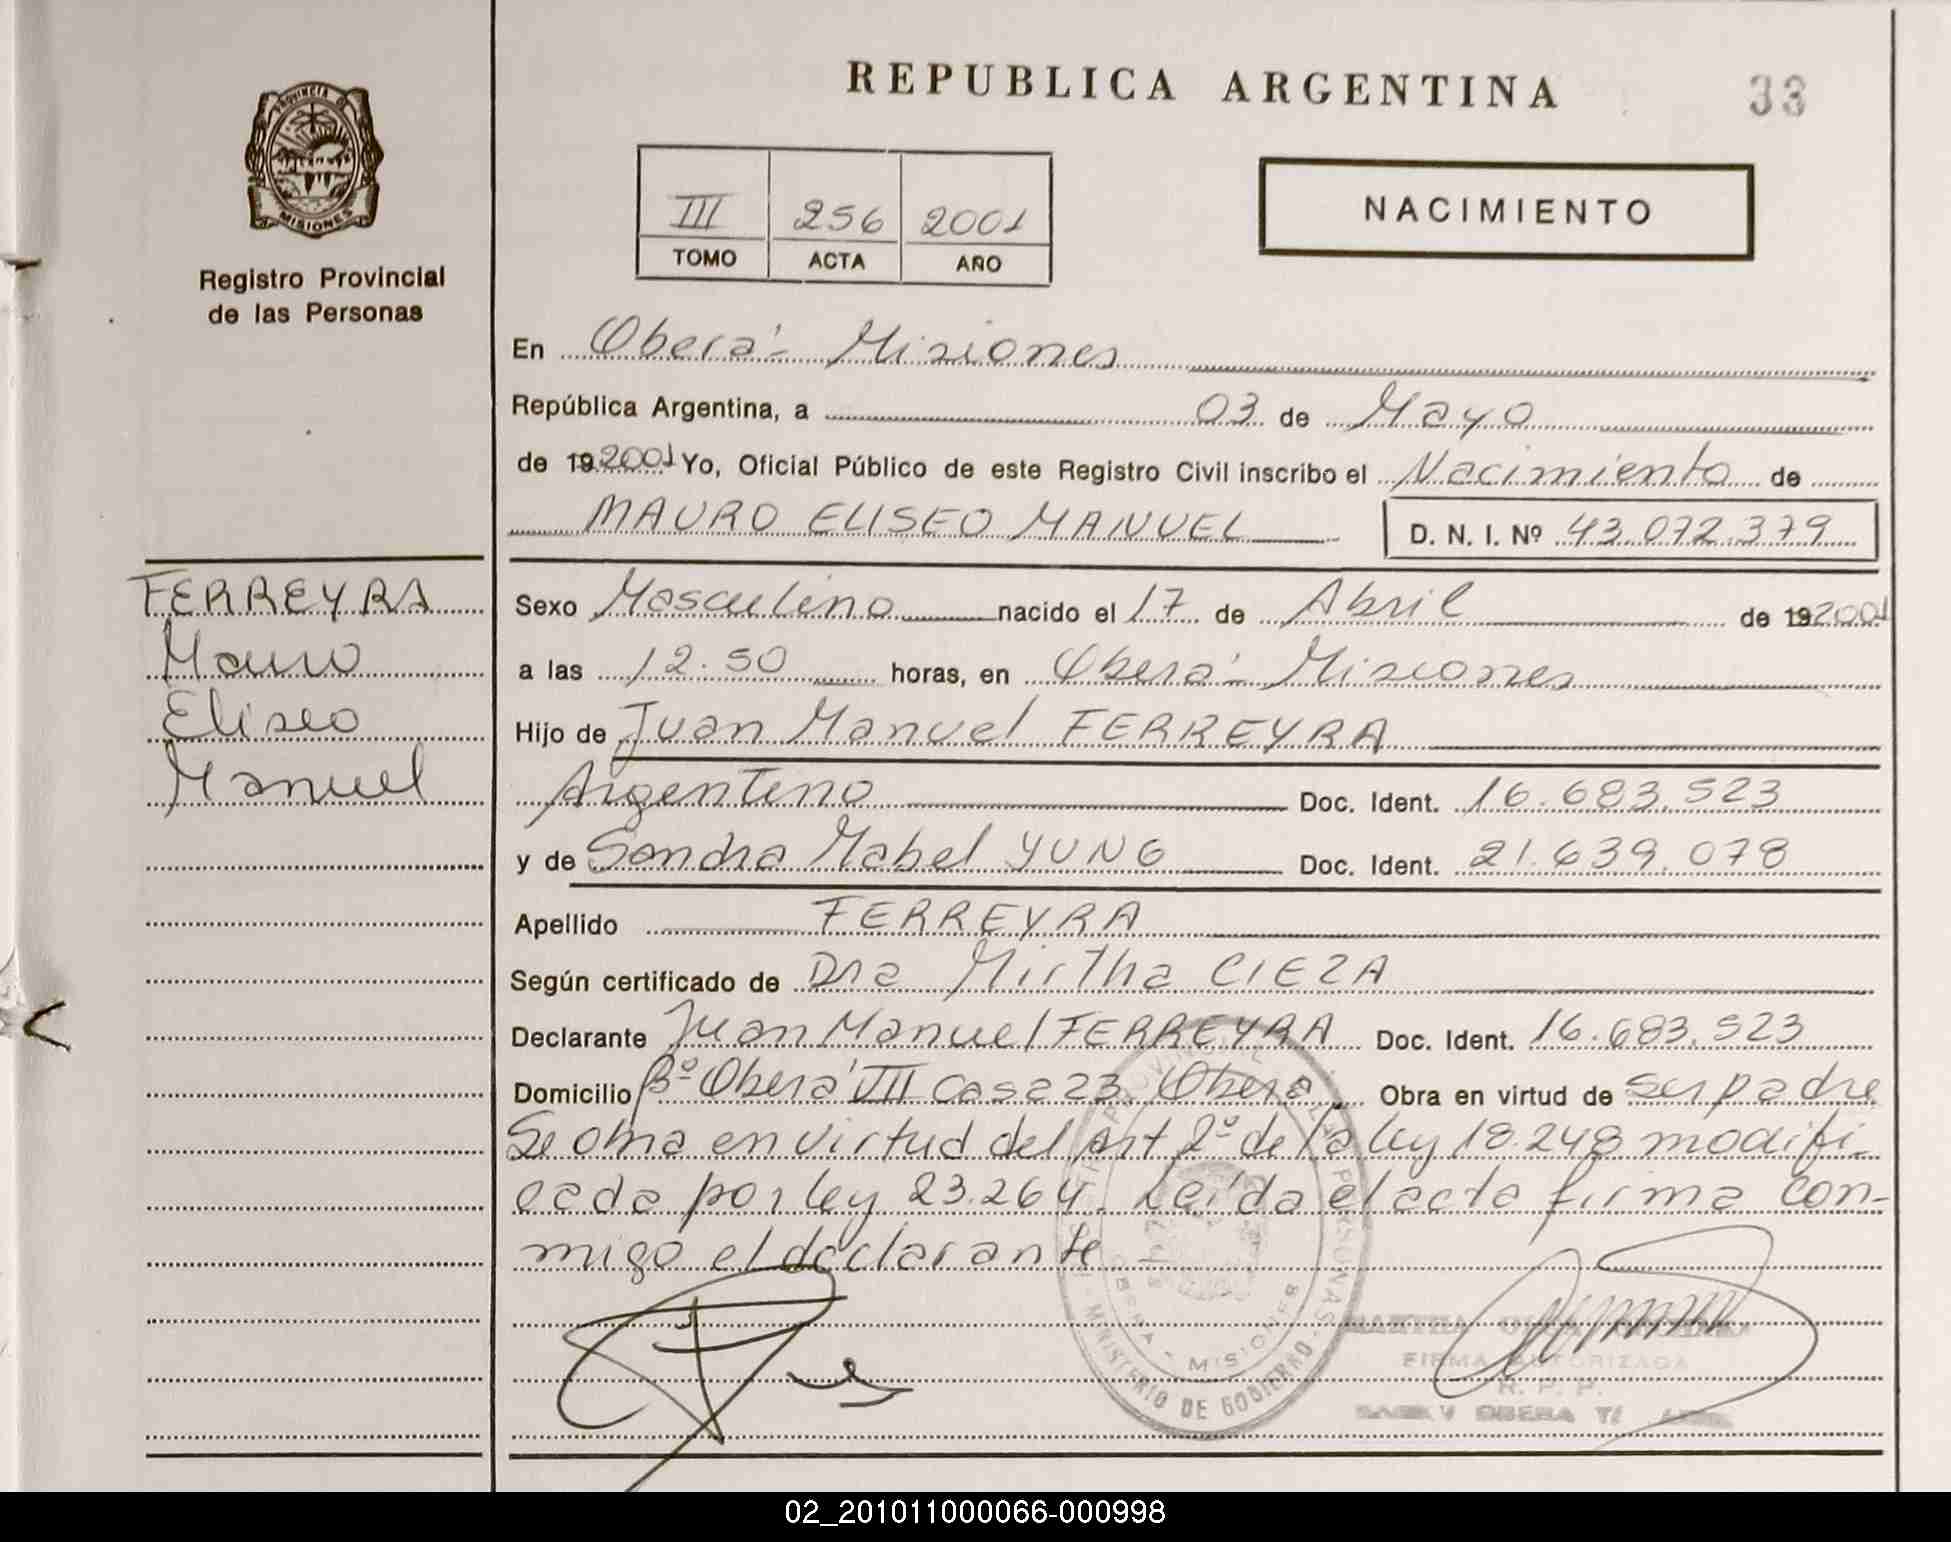 REPUBLICA ARGENTINA
33
PROVINCIA D
MISIONES
Registro Provincial
de las Personas
III 256 2001
TOMO ACTA AÑO
NACIMIENTO
En Oberá - Misiones
República Argentina, a 03 de Mayo
de 19 2001 Yo, Oficial Público de este Registro Civil inscribo el Nacimiento de
MAURO ELISEO MANUEL D. N. I. Nº 43.072.379
FERREYRA
Mauro
Eliseo
Manuel
Sexo Masculino nacido el 17 de Abril de 19 2001
a las 12.50 horas, en Oberá - Misiones
Hijo de Juan Manuel FERREYRA
Argentino Doc. Ident. 16.683.523
y de Sandra Mabel YUNG Doc. Ident. 21.639.078
Apellido FERREYRA
Según certificado de Dra Mirtha CIEZA
Declarante Juan Manuel FERREYRA Doc. Ident. 16.683.523
Domicilio Bº Oberá VII Casa 23 Oberá Obra en virtud de ser padre
Se obra en virtud del art 2º de la ley 18.248 modifi-
cada por ley 23.264. Leída el acta firma con-
migo el declarante
OBERA - MISIONES
MINISTERIO DE GOBIERNO
FIRMA AUTORIZADA
R. P. P.
02_201011000066-000998